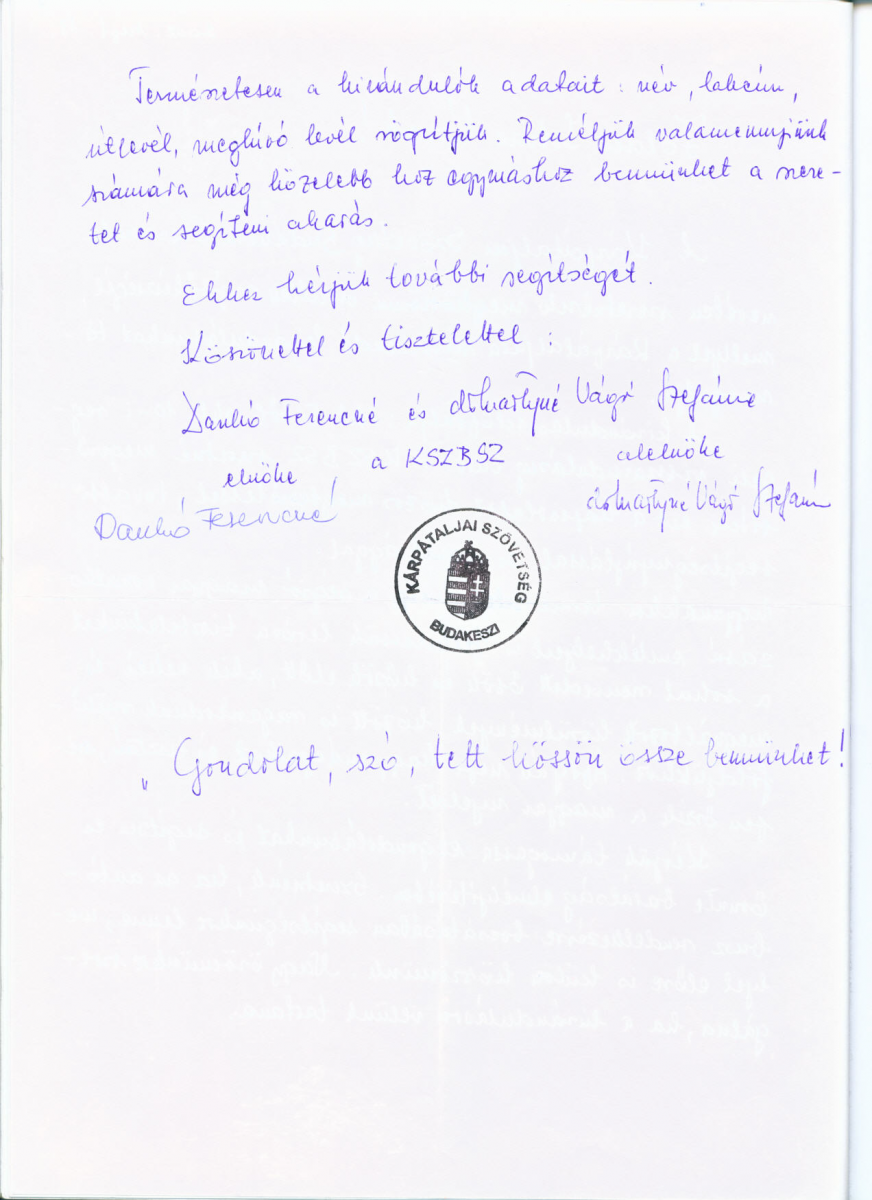 Természetesen a kirándulók adatait: név, lakcím,
útlevél, meghívó levél rögítjük. Reméljük valamennyiünk
számára még közelebb hoz egymáshoz bennünket a szere-
tet és segíteni akarás.
Ehhez kérjük további segítségét.
Köszönettel és tisztelettel:
Dankó Ferencné és Vágó Stefánia
elnöke, a KSZBSZ alelnöke
Dankó Ferencné Vágó Stefánia
KÁRPÁTALJAI SZÖVETSÉG
BUDAKESZI
„Gondolat, szó, tett kössön össze bennünket!